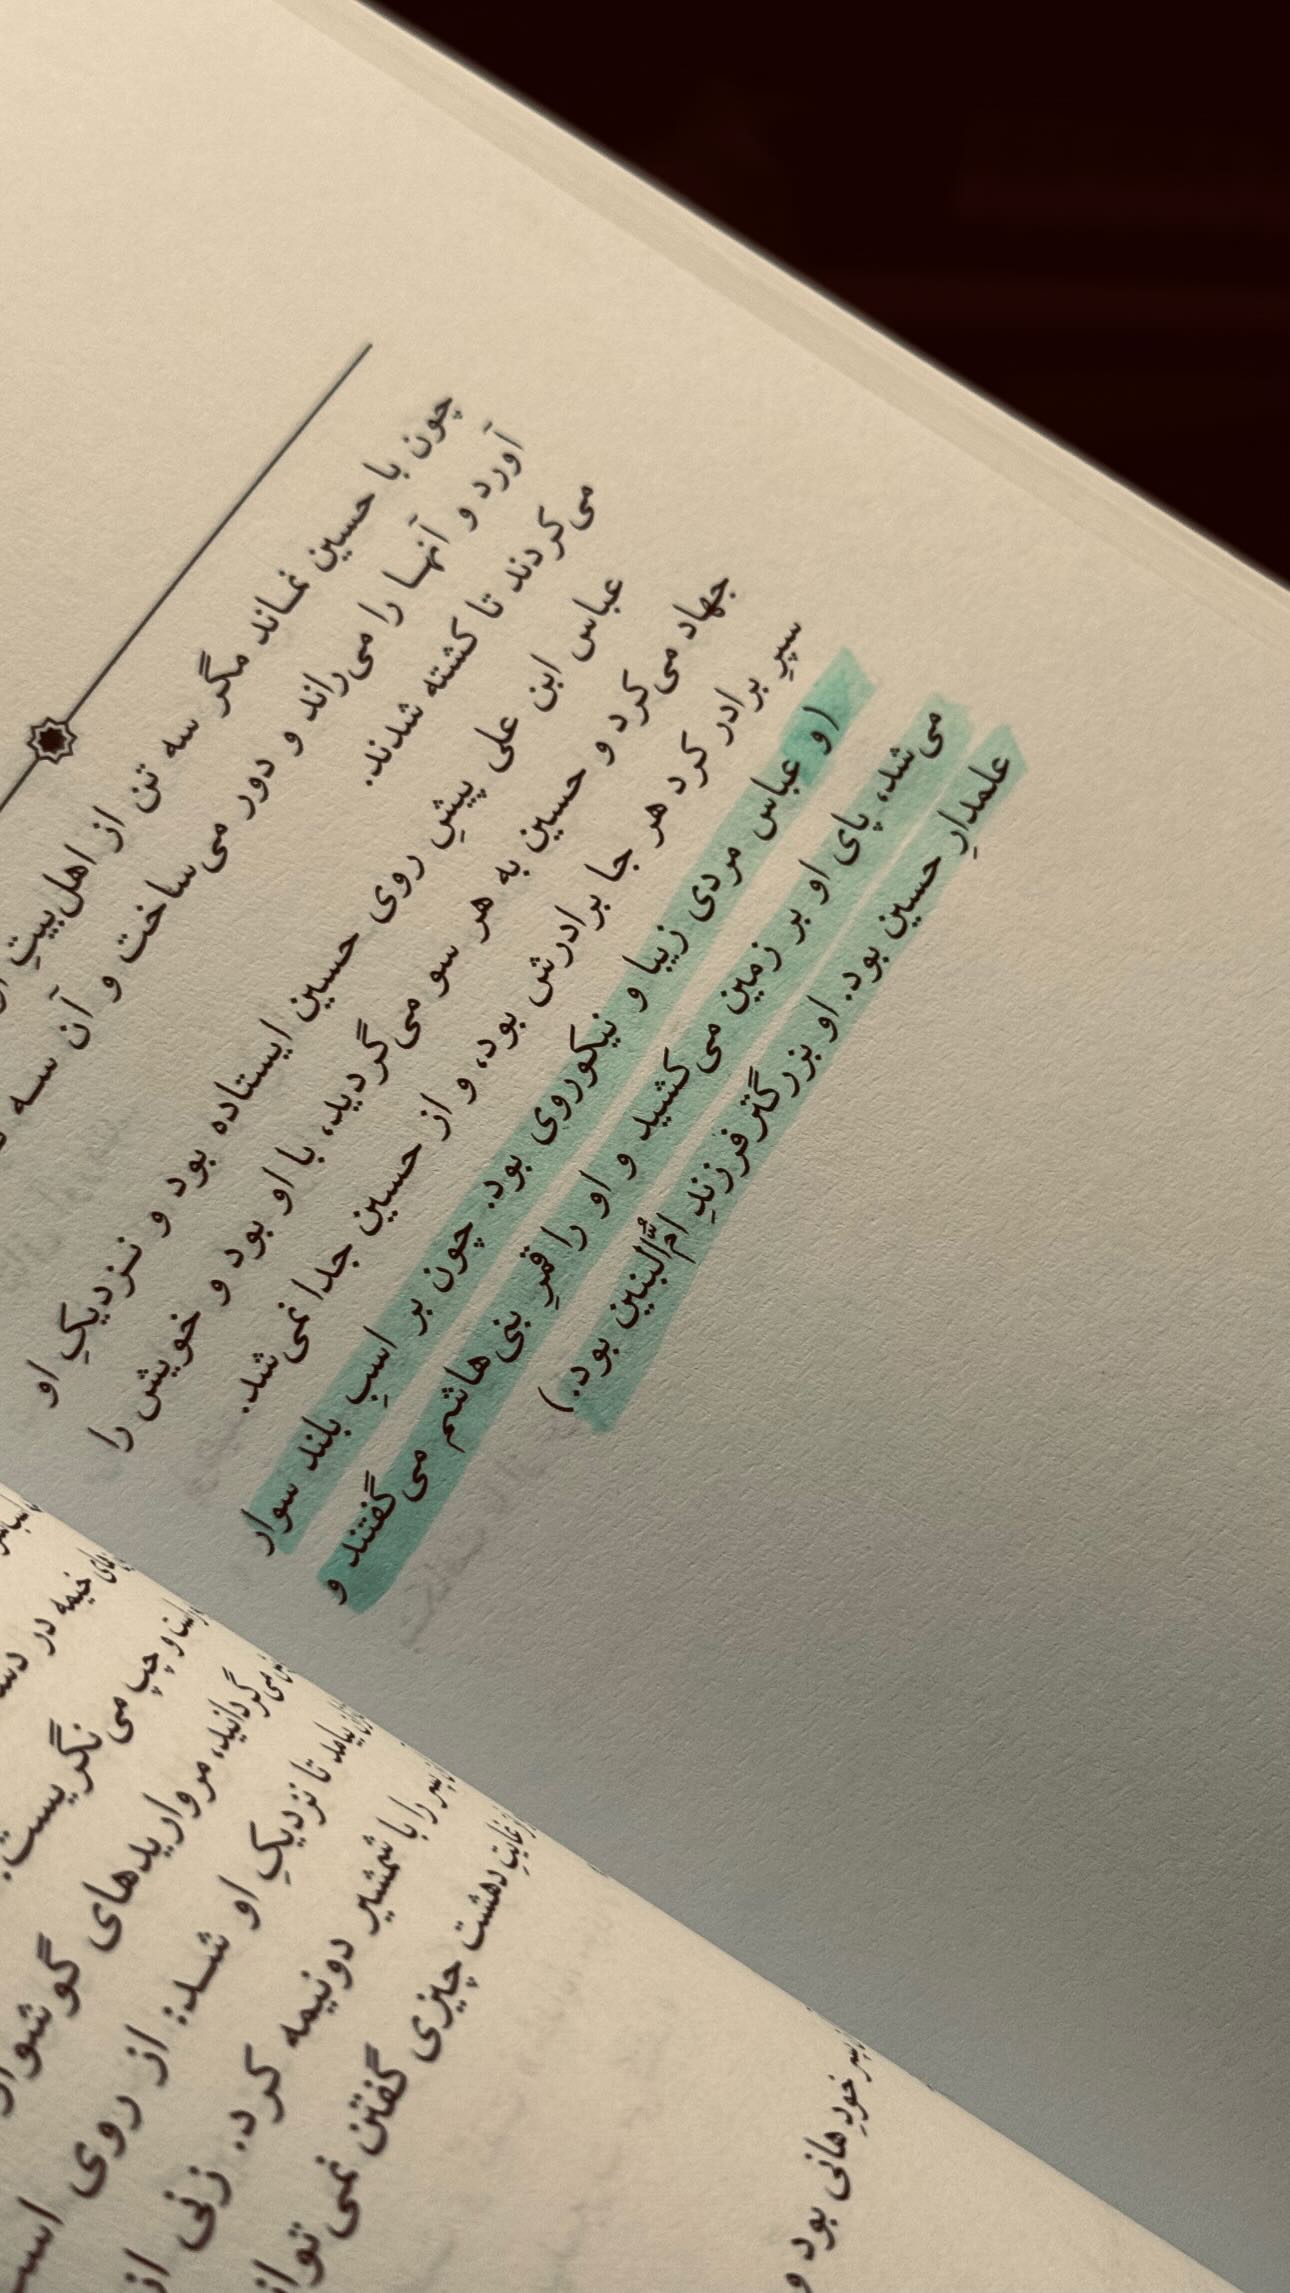 چون با حسین نماند مگر سه تن از اهل بیتِ
آورد و آنها را می‌راند و دور می‌ساخت و آن سه
می‌کردند تا کشته شدند.
عباس ابن علی پیشِ روی حسین ایستاده بود و نزدیکِ او
جهاد می‌کرد و حسین به هر سو می‌گردید، با او بود و خویش را
سپرِ برادر کرد هر جا برادرش بود، و از حسین جدا نمی‌شد.
(و عباس مردی زیبا و نیکوروی بود. چون بر اسبِ بلند سوار
می‌شد، پای او بر زمین می‌کشید و او را قمرِ بنی هاشم می‌گفتند و
علمدارِ حسین بود. او بزرگتر فرزندِ امُّ‌البنین بود.)
خیمه در
و چپ می‌نگریست.
گردانید، مرواریدهای
تا نزدیکِ او شد: از روی
را با شمشیر دونیمه کرد. زنی از
دهشت چیزی گفتن نمی
خودِ هانی بود و